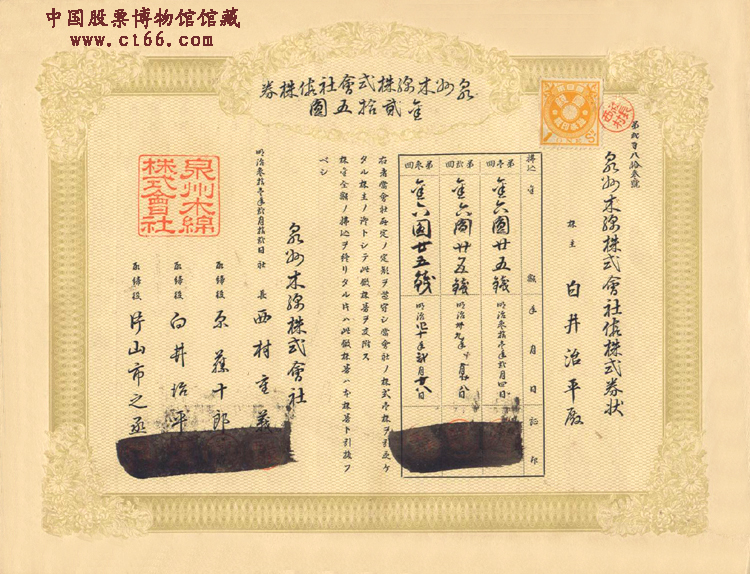 中国股票博物馆馆藏
www.ct66.com
泉州木綿株式會社假株券
金貳拾五圓
第弐百八拾参號
泉州木綿株式會社假株式券状
株主 白井治平殿
拂込金額 年月日 証印
第壱回 金六圓廿五銭 明治参拾壱年 月四日
第弐回 金六圓廿五銭 明治卅九年 月 日
第参回 金六圓廿五銭 明治四十年 月 日
右者當會社所定ノ定則ヲ遵守シ當會社ノ株式壱株ヲ引受ケ
タル株主ノ證トシテ此假株券ヲ交附ス
株金全額ノ拂込ヲ終リタル片ハ此假株券ハ本株券ト引換フ
ベシ
明治参拾壱年拾月拾 日
泉州木綿株式會社
社長 西村
取締役 原 十郎
取締役 白井治平
取締役 片山市之丞
泉州木綿
株式會社